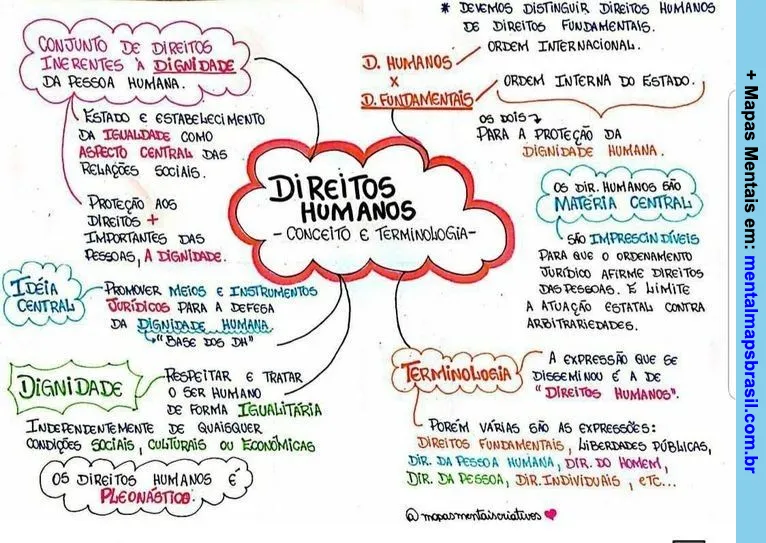 * DEVEMOS DISTINGUIR DIREITOS HUMANOS
DE DIREITOS FUNDAMENTAIS.
D. HUMANOS
ORDEM INTERNACIONAL.
X
D. FUNDAMENTAIS
ORDEM INTERNA DO ESTADO.
OS DOIS
PARA A PROTEÇÃO DA
DIGNIDADE HUMANA.
CONJUNTO DE DIREITOS
INERENTES À DIGNIDADE
DA PESSOA HUMANA.
ESTADO E ESTABELECIMENTO
DA IGUALDADE COMO
ASPECTO CENTRAL DAS
RELAÇÕES SOCIAIS.
PROTEÇÃO AOS
DIREITOS +
IMPORTANTES DAS
PESSOAS, A DIGNIDADE.
DIREITOS
HUMANOS
- CONCEITO E TERMINOLOGIA -
OS DIR. HUMANOS SÃO
MATÉRIA CENTRAL
SÃO IMPRESCINDÍVEIS
PARA QUE O ORDENAMENTO
JURÍDICO AFIRME DIREITOS
DAS PESSOAS. E LIMITE
A ATUAÇÃO ESTATAL CONTRA
ARBITRARIEDADES.
IDÉIA
CENTRAL
PROMOVER MEIOS E INSTRUMENTOS
JURÍDICOS PARA A DEFESA
DA DIGNIDADE HUMANA
"BASE DOS DH"
DIGNIDADE
RESPEITAR E TRATAR
O SER HUMANO
DE FORMA IGUALITÁRIA
INDEPENDENTEMENTE DE QUAISQUER
CONDIÇÕES SOCIAIS, CULTURAIS OU ECONÔMICAS
OS DIREITOS HUMANOS É
PLEONÁSTICO.
TERMINOLOGIA
A EXPRESSÃO QUE SE
DISSEMINOU É A DE
"DIREITOS HUMANOS".
PORÉM VÁRIAS SÃO AS EXPRESSÕES:
DIREITOS FUNDAMENTAIS, LIBERDADES PÚBLICAS,
DIR. DA PESSOA HUMANA, DIR. DO HOMEM,
DIR. DA PESSOA, DIR. INDIVIDUAIS, ETC...
@mapasmentaiscriativos
+ Mapas Mentais em: mentalmapsbrasil.com.br